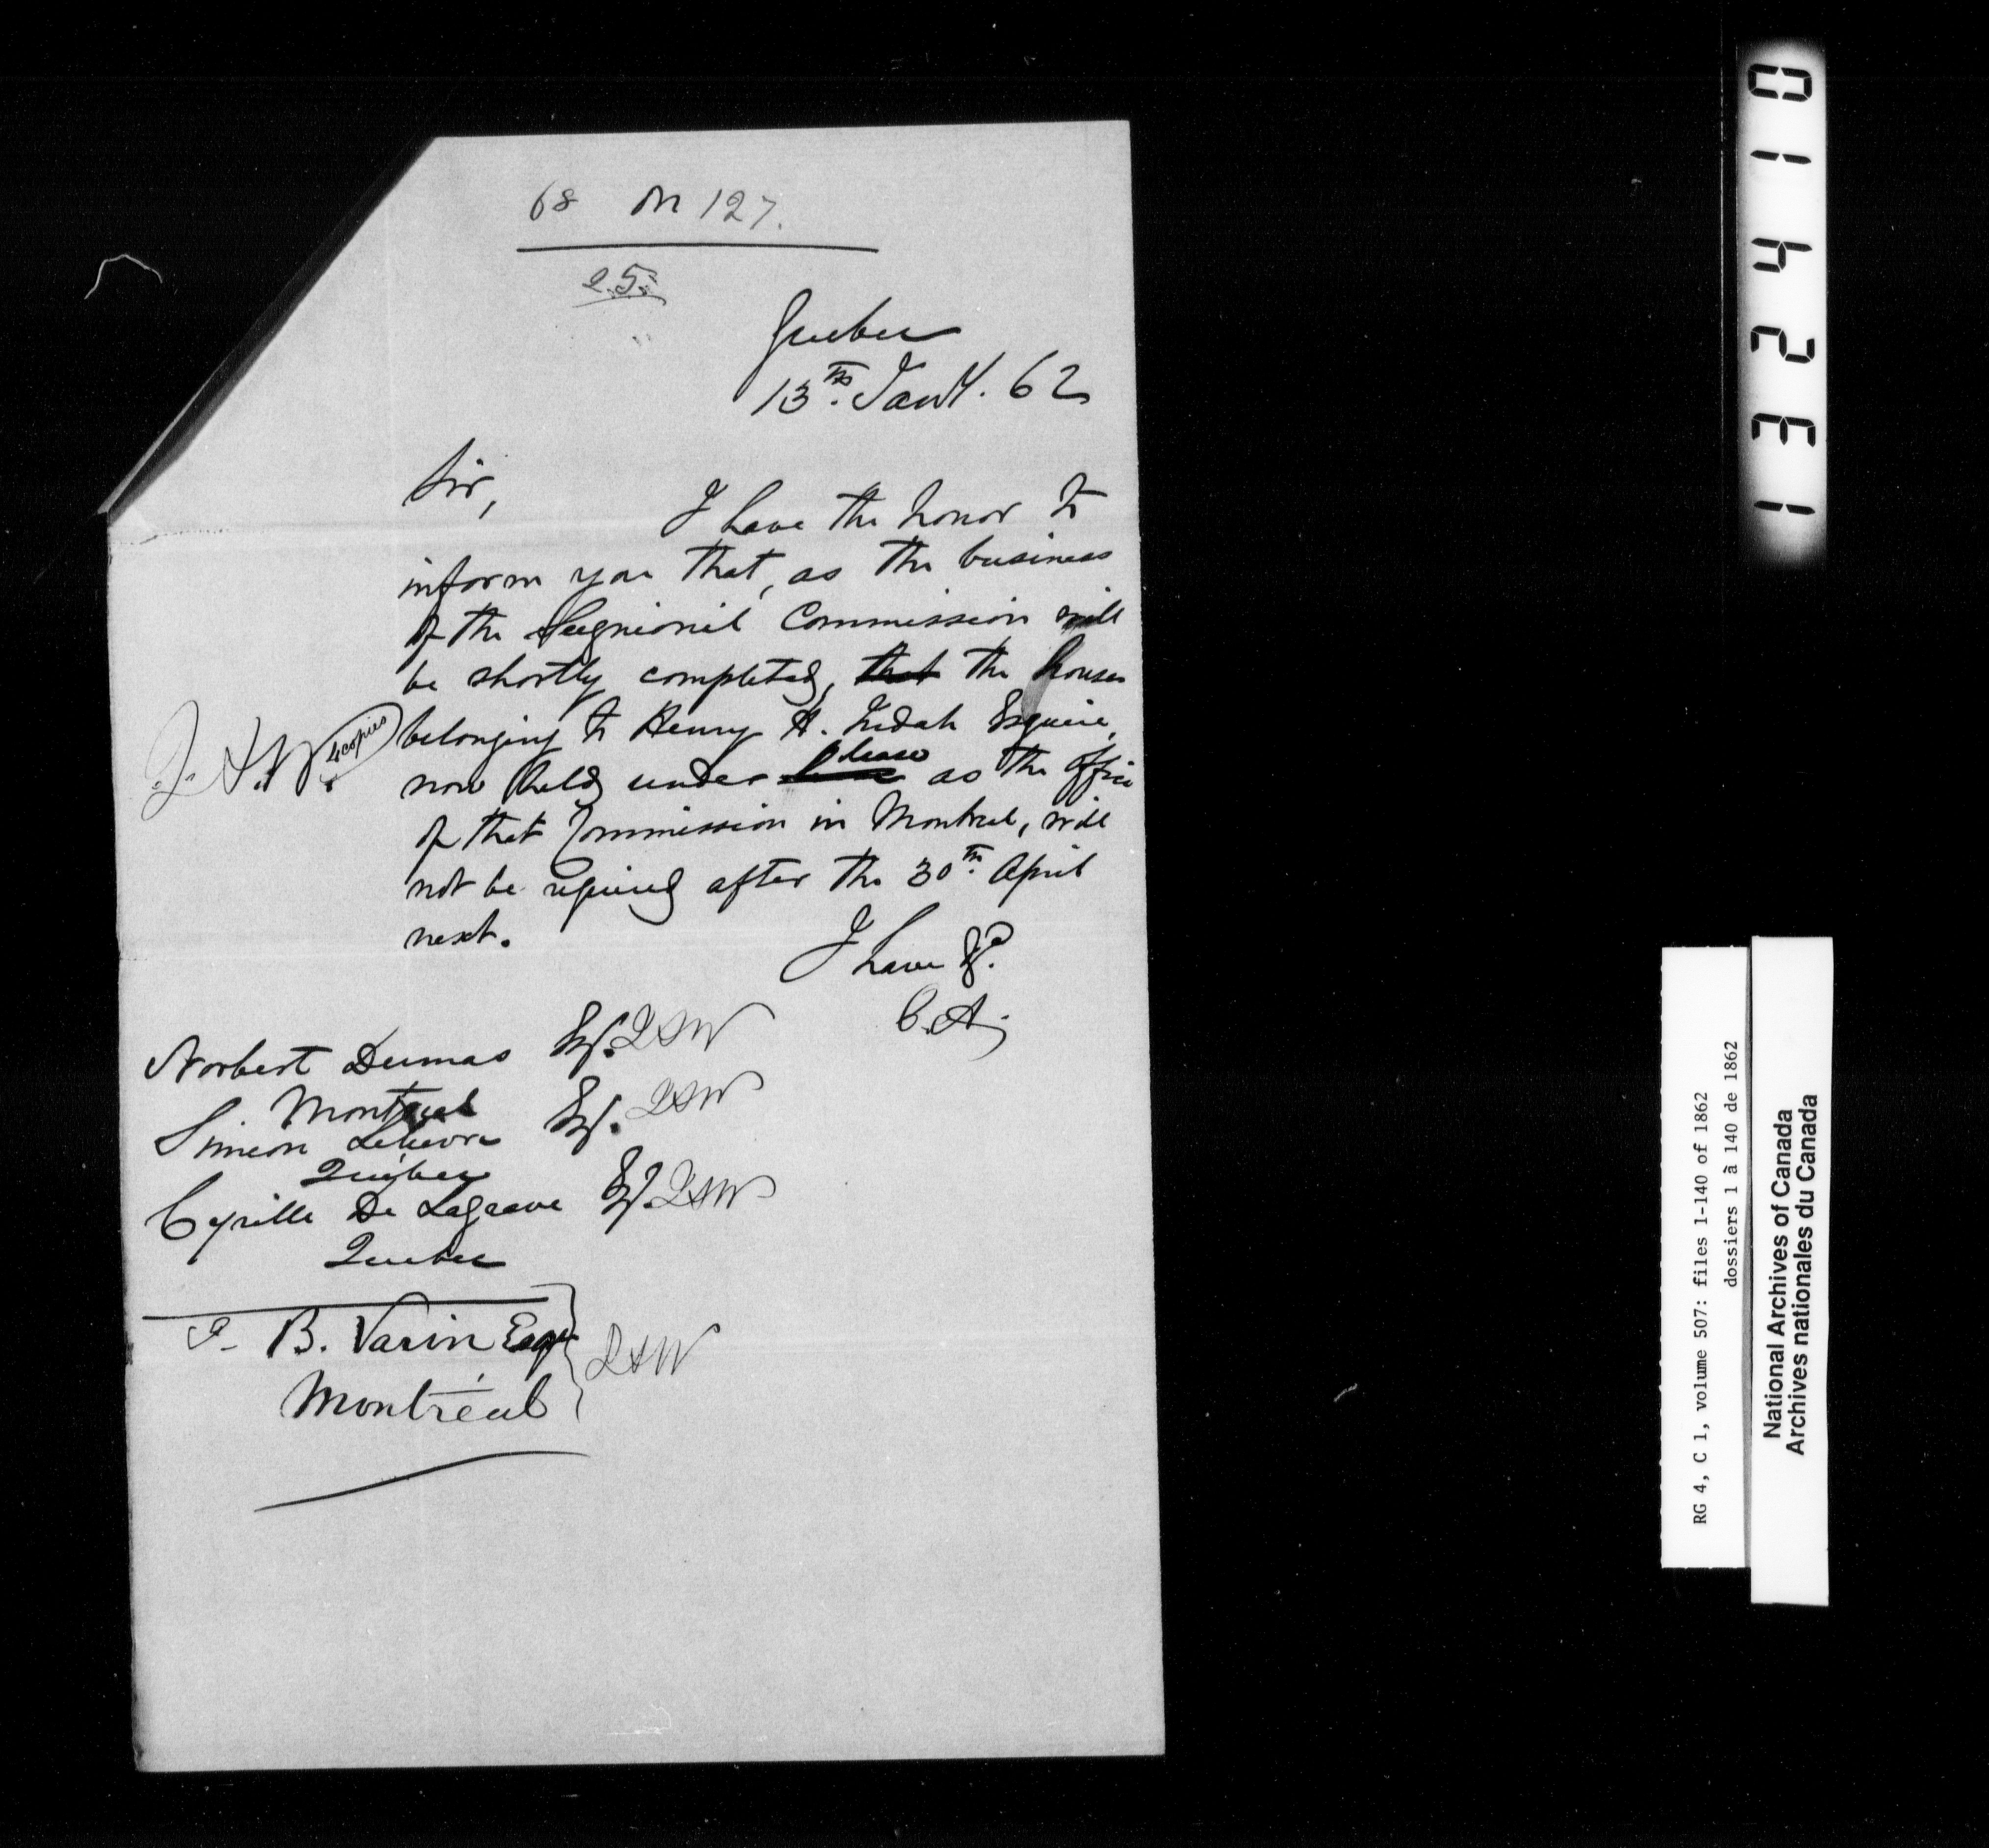 68 on 127.
25.
Quebec
13th. Jany. 62
Sir,
I have the honor to
inform you that, as the business
of the Seigniorial Commission will
be shortly completed, that the house
belonging to Henry H. Judah Esquire,
now held under lease as the office
of that Commission in Montreal, will
not be required after the 30th. April
next.
4 copies
I have &c.
C.A.
Norbert Dumas Esq.
Montreal
Simeon Lelievre Esq.
Quebec
Cyrille De Lagrave Esq.
Quebec
J- B. Varin Esqr
Montréal
013241
RG 4, C 1, volume 507: files 1-140 of 1862
dossiers 1 à 140 de 1862
National Archives of Canada
Archives nationales du Canada